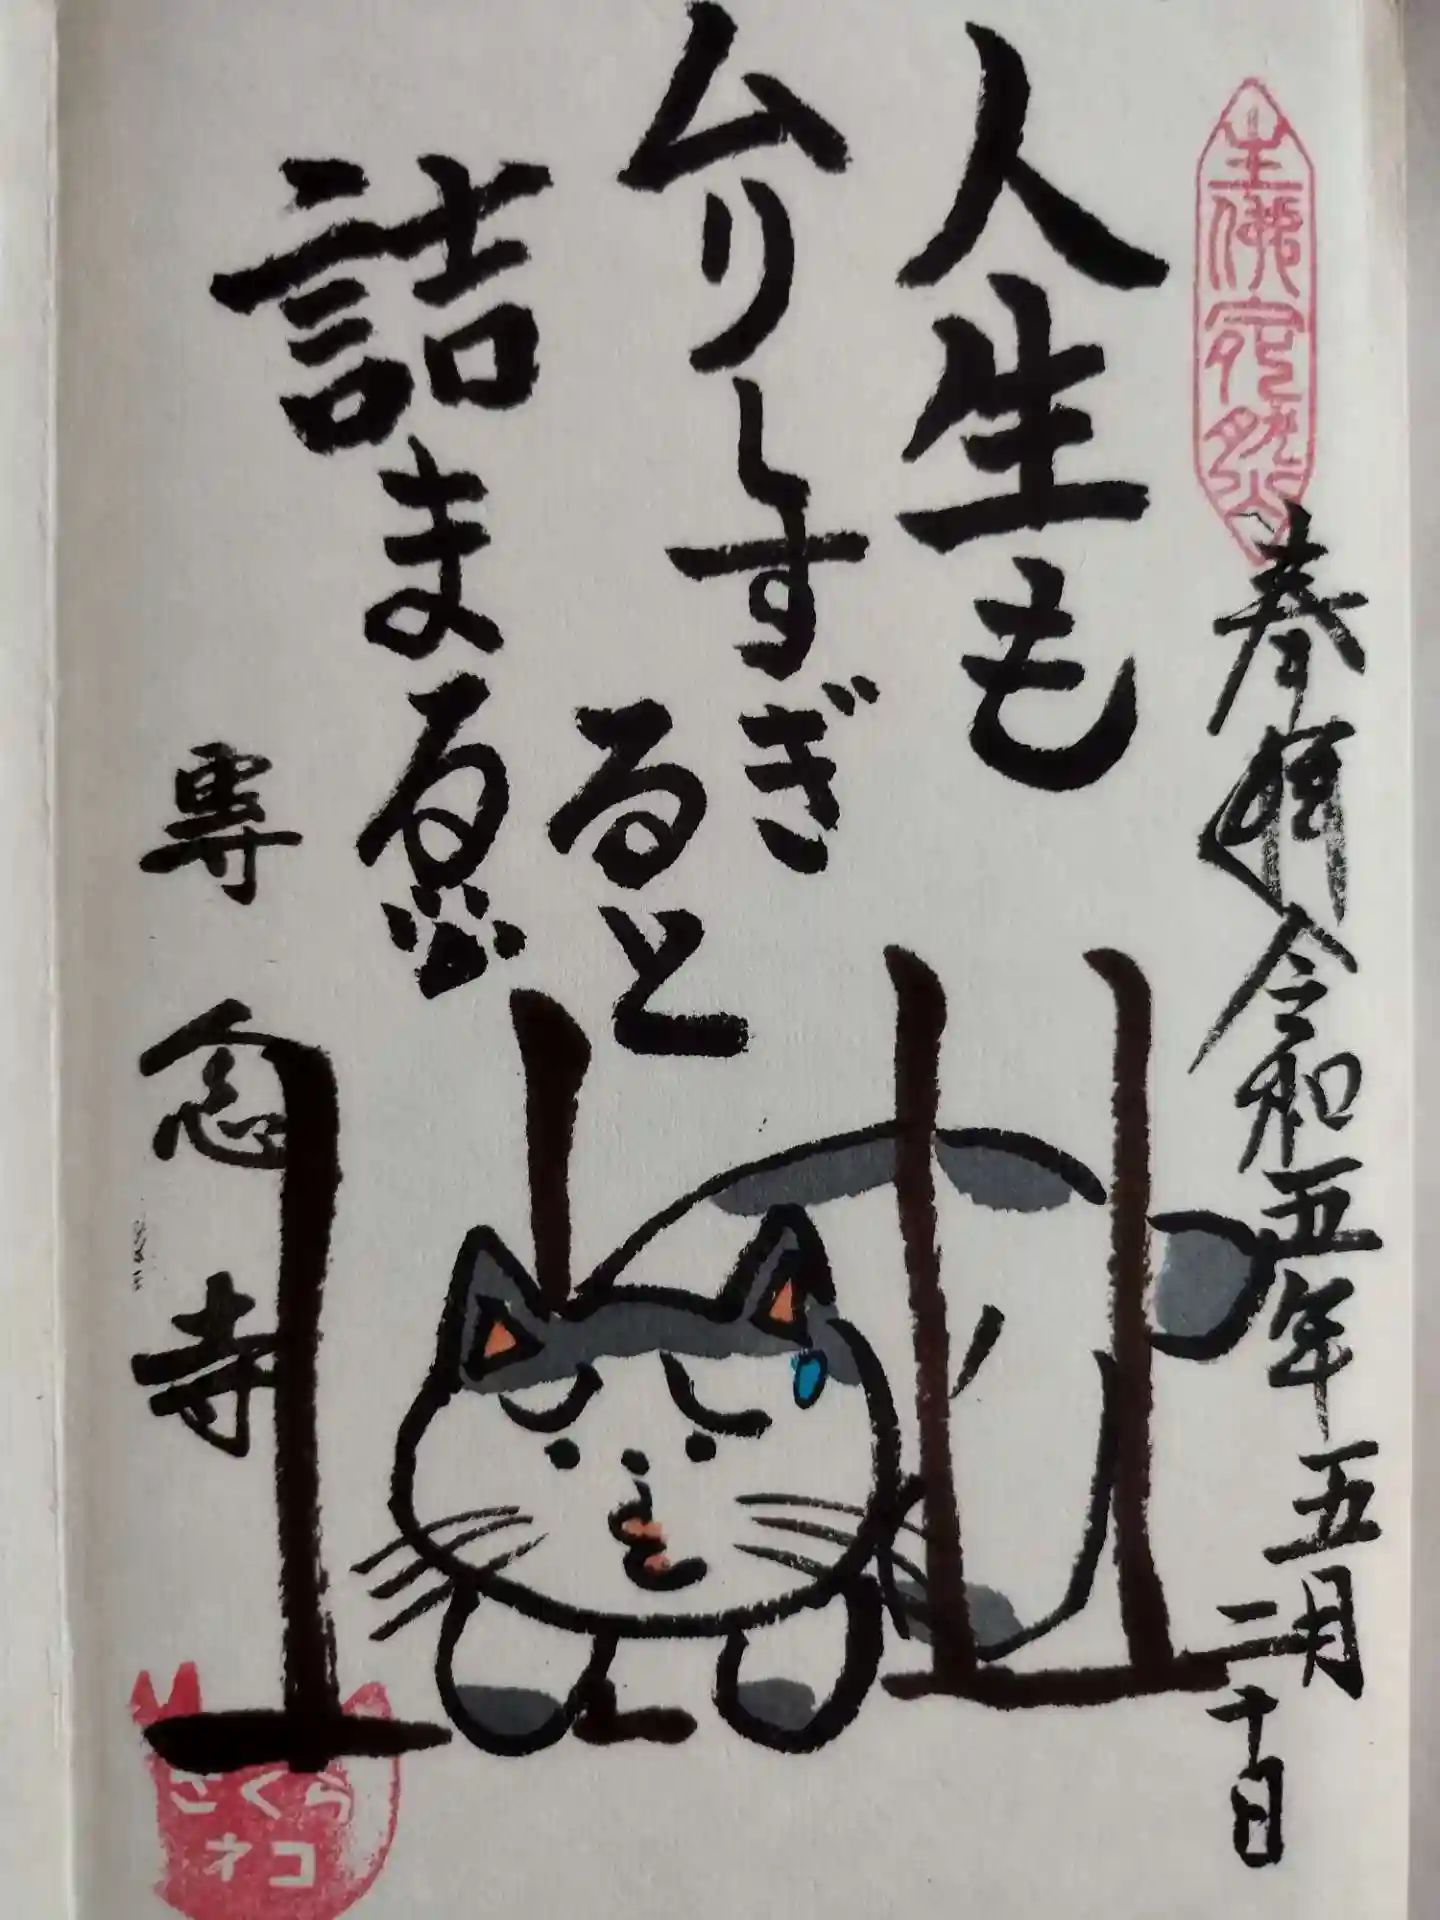 奉拝 令和五年五月二十日
人生も
ムリしすぎ
ると
詰まる
専念寺
さくら
ネコ